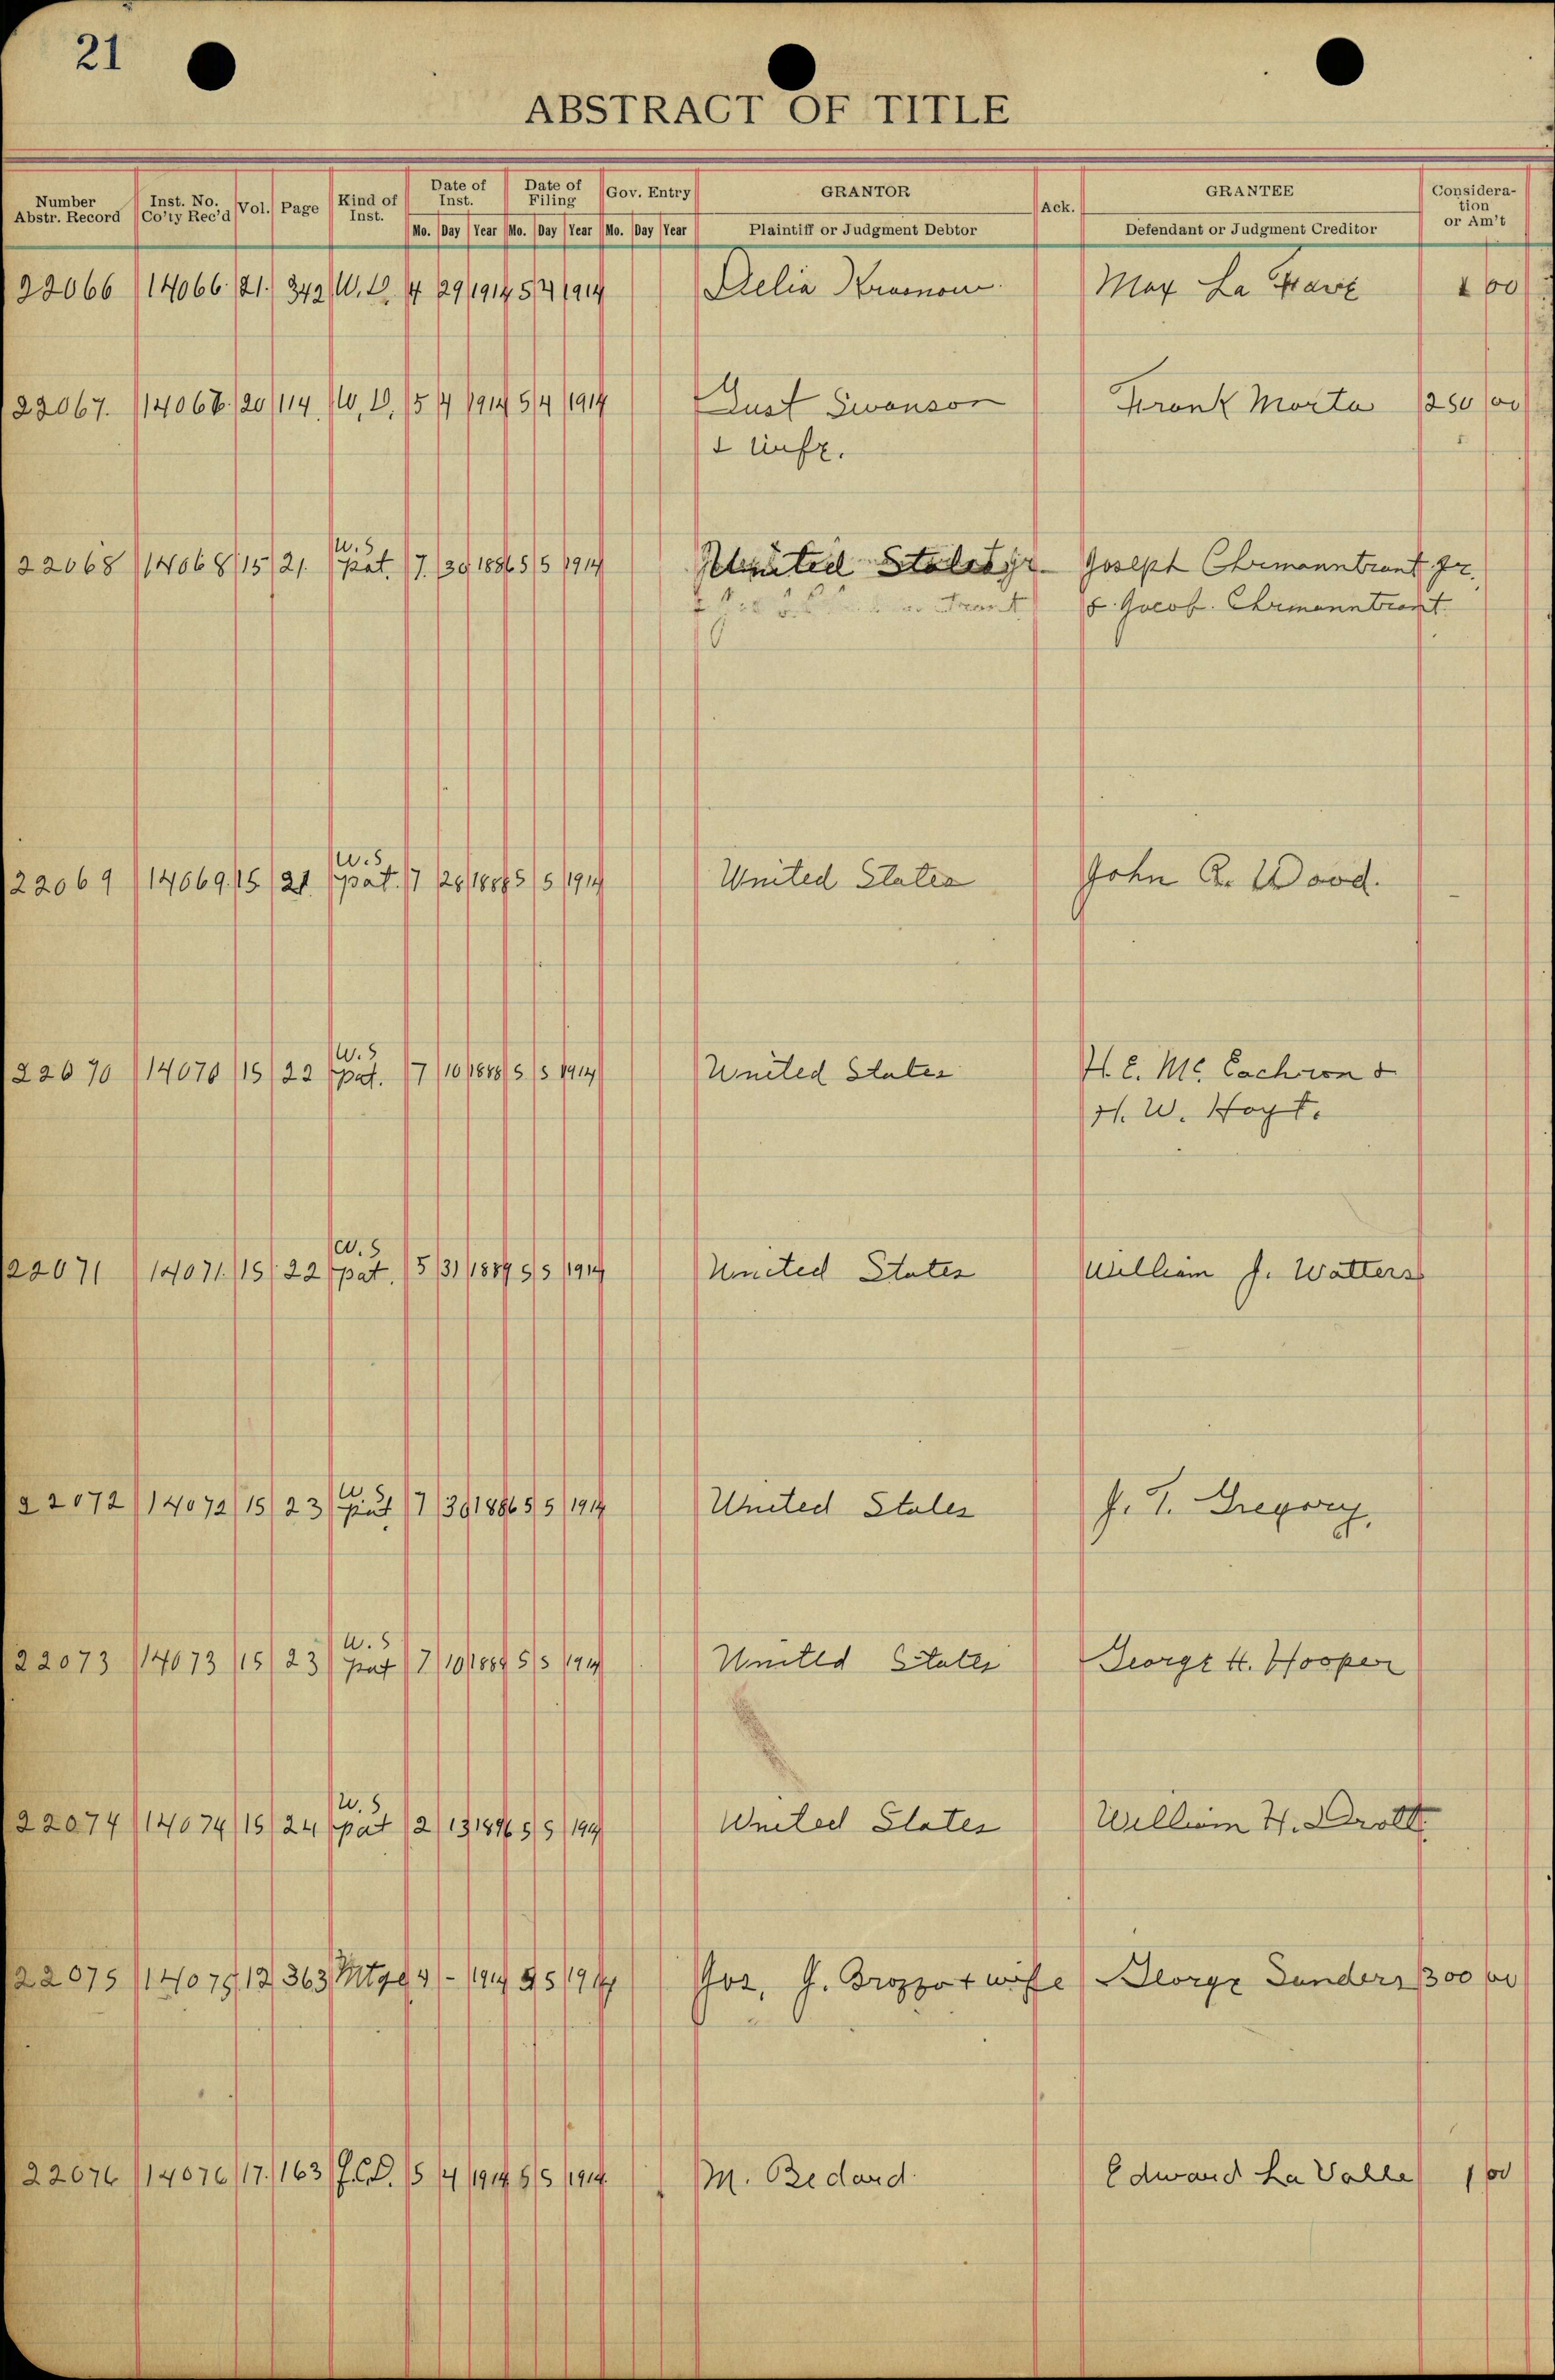 21
ABSTRACT OF TITLE
Number Abstr. Record Inst. No. Co'ty Rec'd Vol. Page Kind of Inst. Date of Inst. Mo. Day Year Date of Filing Mo. Day Year Gov. Entry Mo. Day Year GRANTOR Plaintiff or Judgment Debtor Ack. GRANTEE Defendant or Judgment Creditor Consideration or Am't
22066 14066 21 342 W. D. 4 29 1914 5 4 1914 Delia Max La 1 00
22067. 14067 20 114 W. D. 5 4 1914 5 4 1914 Gust Swanson Frank Morta 250 00
& Wife.
U.S
22068 14068 15 21. pat. 7. 30 1886 5 5 1914 United States Joseph Ehrmanntraut Jr.
& Jacob. Ehrmanntraut
U.S
22069 14069 15 21 pat. 7 28 5 5 1914 United States John R. Wood.
U.S
22070 14070 15 22 pat. 7 10 1888 5 5 1914 United States H. E. Mc. Eachron &
H. W. Hoyt.
U.S
22071 14071 15 22 pat. 5 31 1889 5 5 1914 United States William J. Watters
U.S
22072 14072 15 23 pat. 7 30 1886 5 5 1914 United States J. T. Gregory,
U.S
22073 14073 15 23 pat 7 10 5 5 1914 United States George H. Hooper
U.S
22074 14074 15 24 pat 2 13 1896 5 5 1914 United States William H. Drott.
22075 14075 12 363 Mtge 4 - 1914 5 5 1914 Jos. J. Brozzo & wife George Sanders 300 00
22076 14076 17. 163 Q.C.D. 5 4 1914 5 5 1914 M. Bedard Edward La Valle 1 00